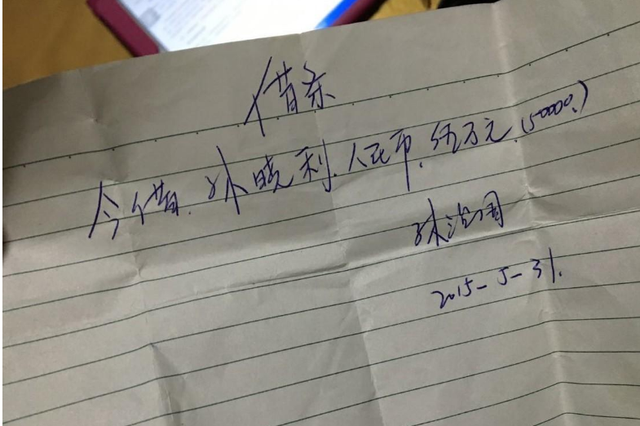 借条
今借 孙晓利 人民币 伍万元(50000.)
孙治国
2015-5-31.